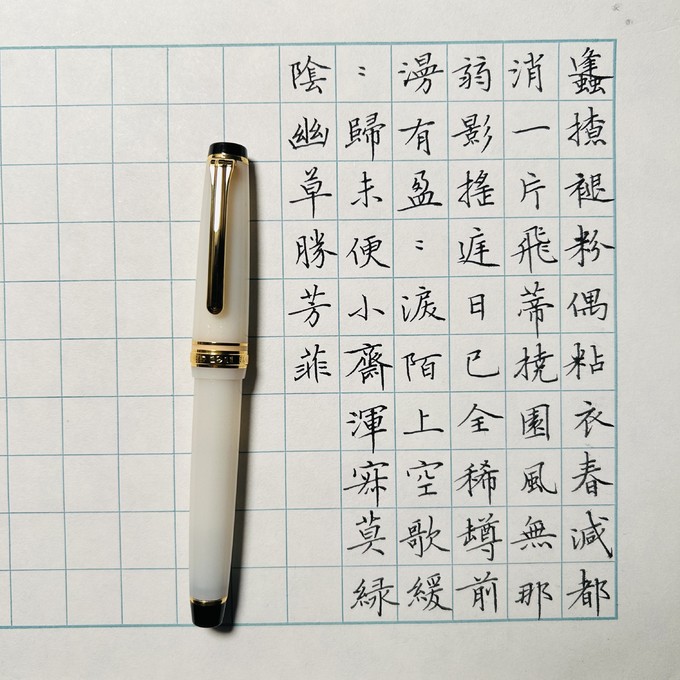 蠭揸褪粉偶粘衣春減都
消一片飛蒂撓園風無那
弱影搖庭日已全稀罇前
漫有盈：淚陌上空歌緩
：歸未便小齋渾寂莫緑
陰幽草勝芳菲